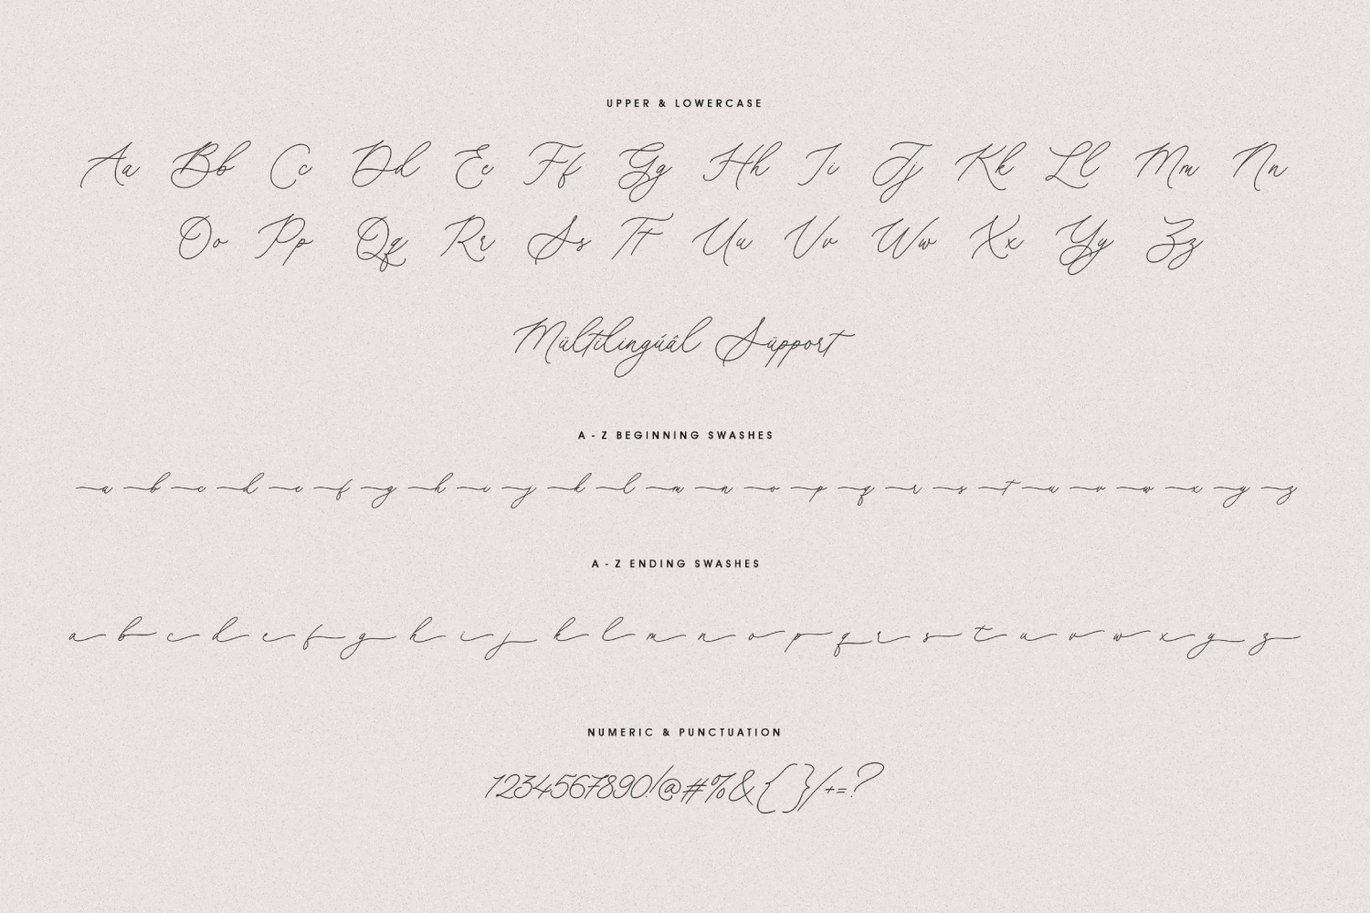 UPPER & LOWERCASE
Aa Bb Cc Dd Ee Ff Gg Hh Ii Jj Kk Ll Mm Nn
Oo Pp Qq Rr Ss Tt Uu Vv Ww Xx Yy Zz
Mültilingúâl Süpport
A - Z BEGINNING SWASHES
a b c d e f g h i j k l m n o p q r s t u v w x y z
A - Z ENDING SWASHES
a b c d e f g h i j k l m n o p q r s t u v w x y z
NUMERIC & PUNCTUATION
1234567890!@#%&{}/+=?